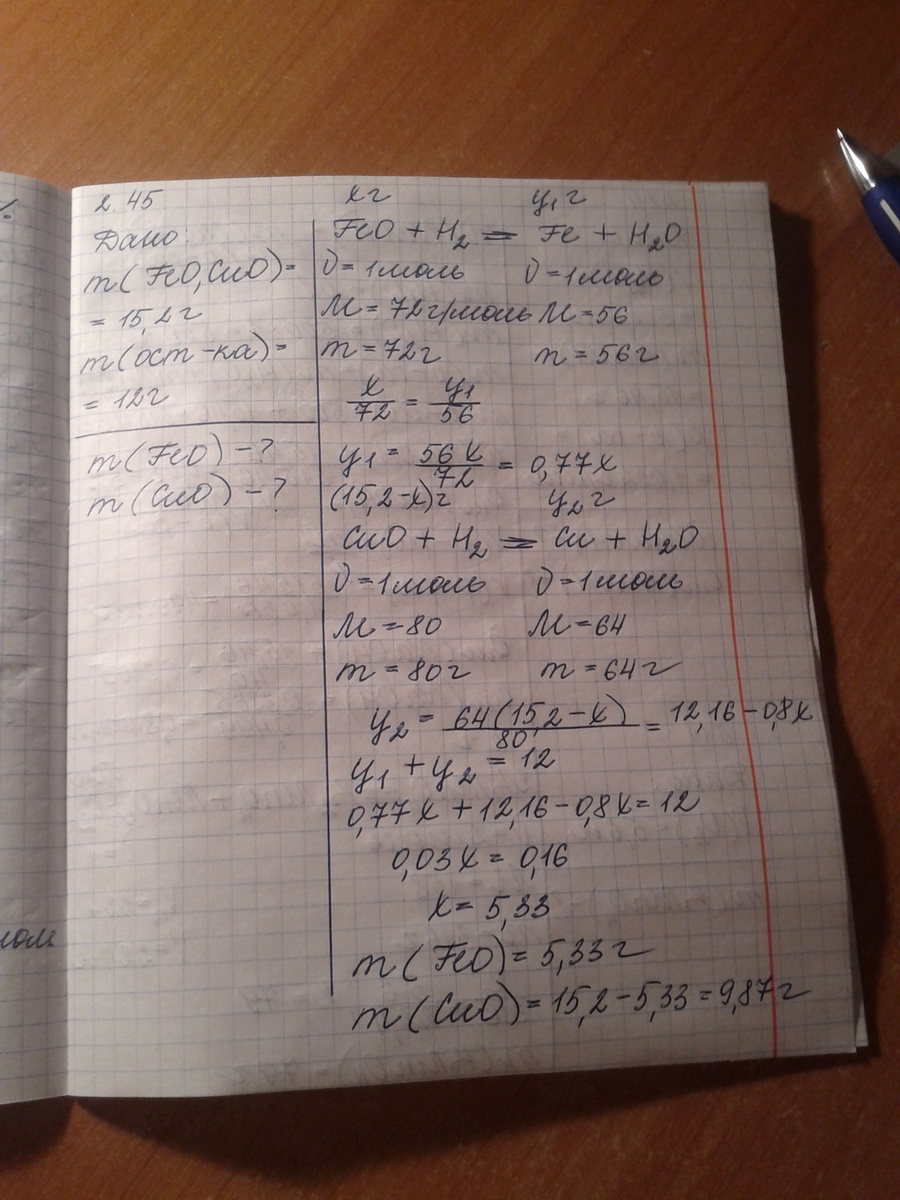 2.45
Дано:
m(FeO,CuO)=
= 15,2г
m(ост-ка)=
= 12г
m(FeO) - ?
m(CuO) - ?
xг y₁г
FeO + H₂ = Fe + H₂O
ν=1моль ν=1моль
M=72г/моль M=56
m=72г m=56г
x/72 = y₁/56
y₁ = 56x/72 = 0,77x
(15,2-x)г y₂г
CuO + H₂ = Cu + H₂O
ν=1моль ν=1моль
M=80 M=64
m=80г m=64г
y₂ = 64(15,2-x)/80 = 12,16-0,8x
y₁ + y₂ = 12
0,77x + 12,16 - 0,8x = 12
0,03x = 0,16
x = 5,33
m(FeO) = 5,33г
m(CuO) = 15,2-5,33 = 9,87г